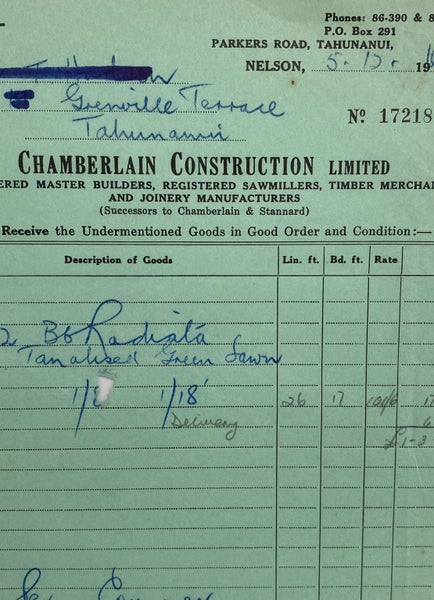 Phones: 86-390 & 8
P.O. Box 291
PARKERS ROAD, TAHUNANUI,
NELSON, 5.12. 19
Grenville Terrace
Nº 17218
Tahunanui
CHAMBERLAIN CONSTRUCTION LIMITED
ERED MASTER BUILDERS, REGISTERED SAWMILLERS, TIMBER MERCHAN
AND JOINERY MANUFACTURERS
(Successors to Chamberlain & Stannard)
Receive the Undermentioned Goods in Good Order and Condition:—
Description of Goods Lin. ft. Bd. ft. Rate
2 Bb Radiata
Tanalised Green Sawn
1/8 1/18' 26 17 100/6 17
Delivery 6
£1-3